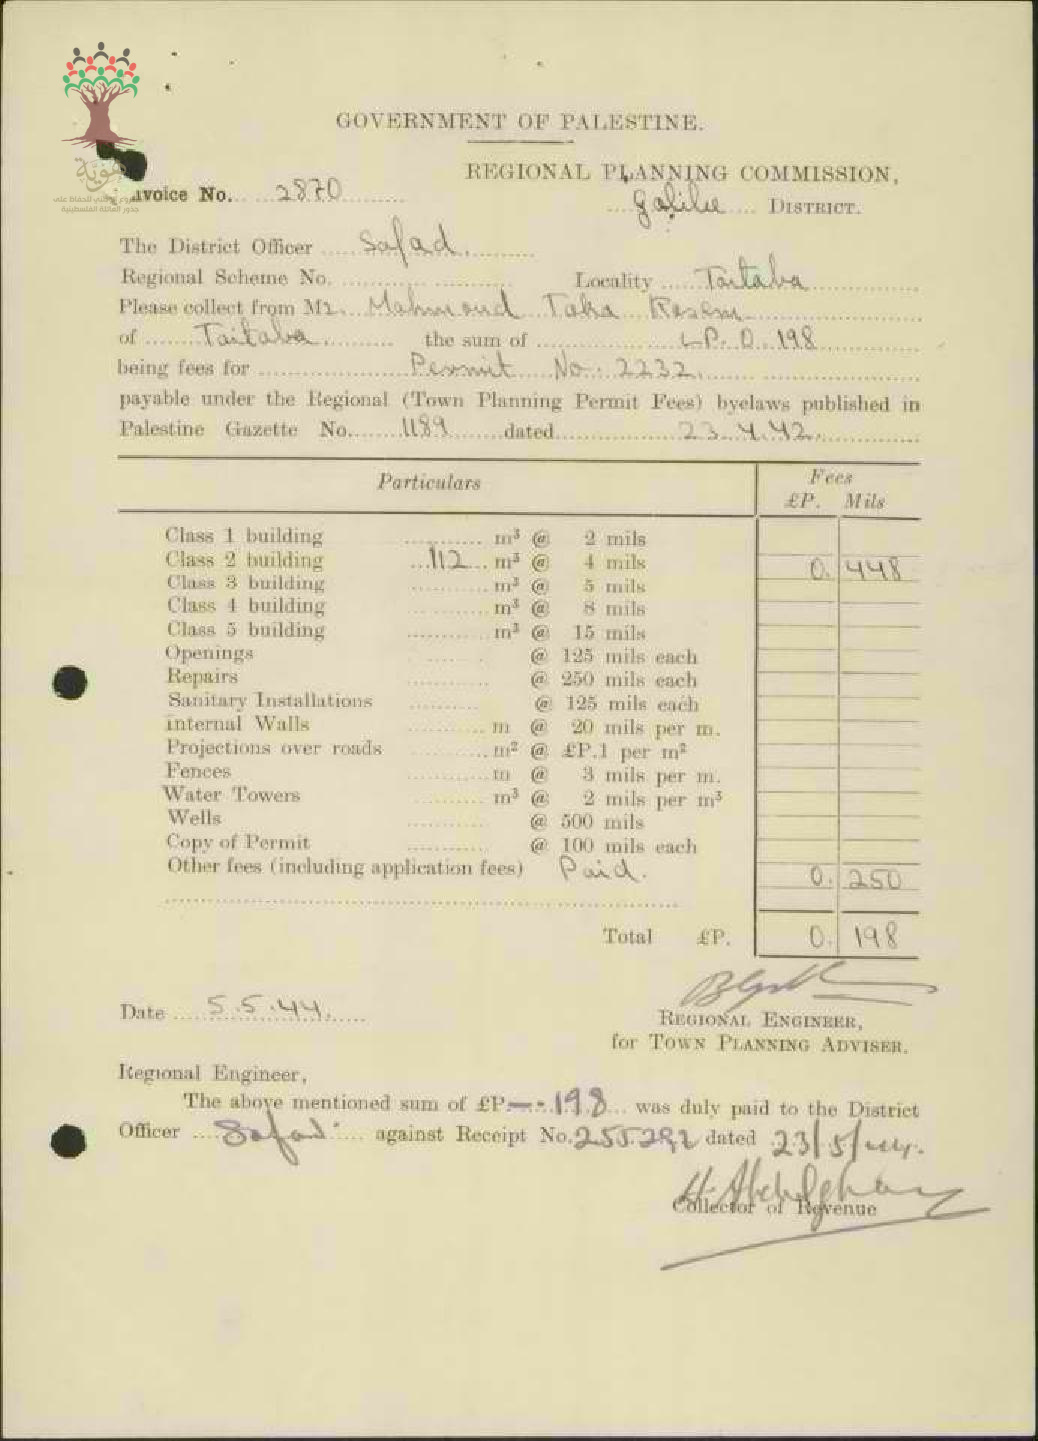 GOVERNMENT OF PALESTINE.
REGIONAL PLANNING COMMISSION,
هوية
nvoice No. 2870
Galilee DISTRICT.
The District Officer Safad.
Regional Scheme No. Locality Taitaba
Please collect from Mr. Mahmoud Taha Kasem
of Taitaba the sum of LP. 0. 198
being fees for Permit No. 2232.
payable under the Regional (Town Planning Permit Fees) byelaws published in
Palestine Gazette No. 1189 dated 23.4.42.
Particulars Fees
£P. Mils
Class 1 building m³ @ 2 mils
Class 2 building 112 m³ @ 4 mils 0. 448
Class 3 building m³ @ 5 mils
Class 4 building m³ @ 8 mils
Class 5 building m³ @ 15 mils
Openings @ 125 mils each
Repairs @ 250 mils each
Sanitary Installations @ 125 mils each
Internal Walls m @ 20 mils per m.
Projections over roads m² @ £P.1 per m²
Fences m @ 3 mils per m.
Water Towers m³ @ 2 mils per m³
Wells @ 500 mils
Copy of Permit @ 100 mils each
Other fees (including application fees) Paid. 0. 250
Total £P. 0. 198
Date 5.5.44.
REGIONAL ENGINEER,
for TOWN PLANNING ADVISER.
Regional Engineer,
The above mentioned sum of £P.—-198 was duly paid to the District
Officer Safad against Receipt No. 255292 dated 23/5/44.
Collector of Revenue